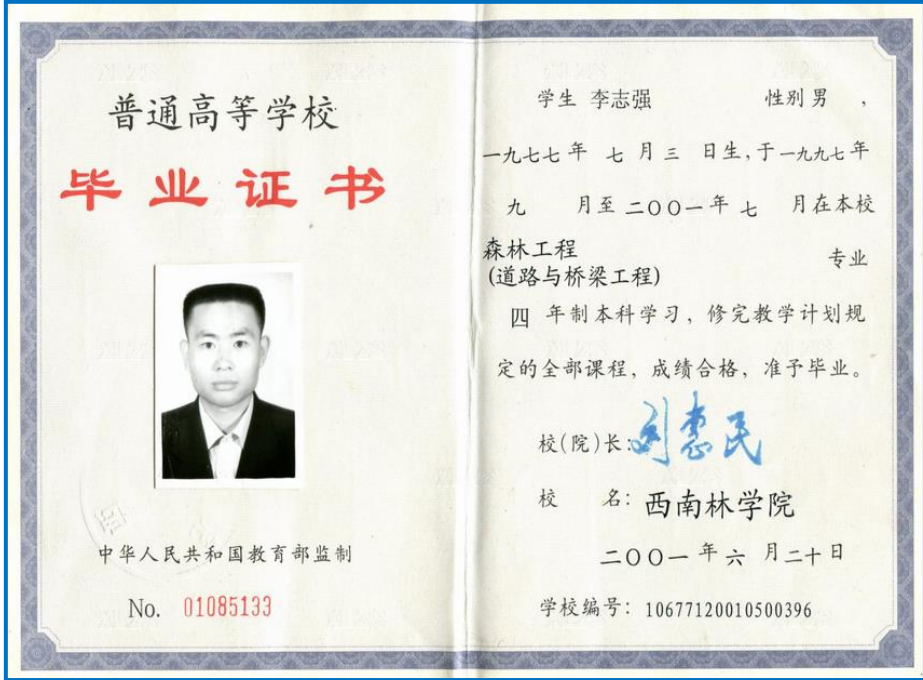 普通高等学校
毕业证书
中华人民共和国教育部监制
No. 01085133
学生 李志强 性别 男 ,
一九七七年 七 月 三 日生,于一九九七年
九 月至 二〇〇一年 七 月在本校
森林工程
(道路与桥梁工程) 专业
四 年制本科学习, 修完教学计划规
定的全部课程, 成绩合格, 准予毕业。
校(院)长: 刘惠民
校 名: 西南林学院
二〇〇一 年 六 月二十日
学校编号: 10677120010500396